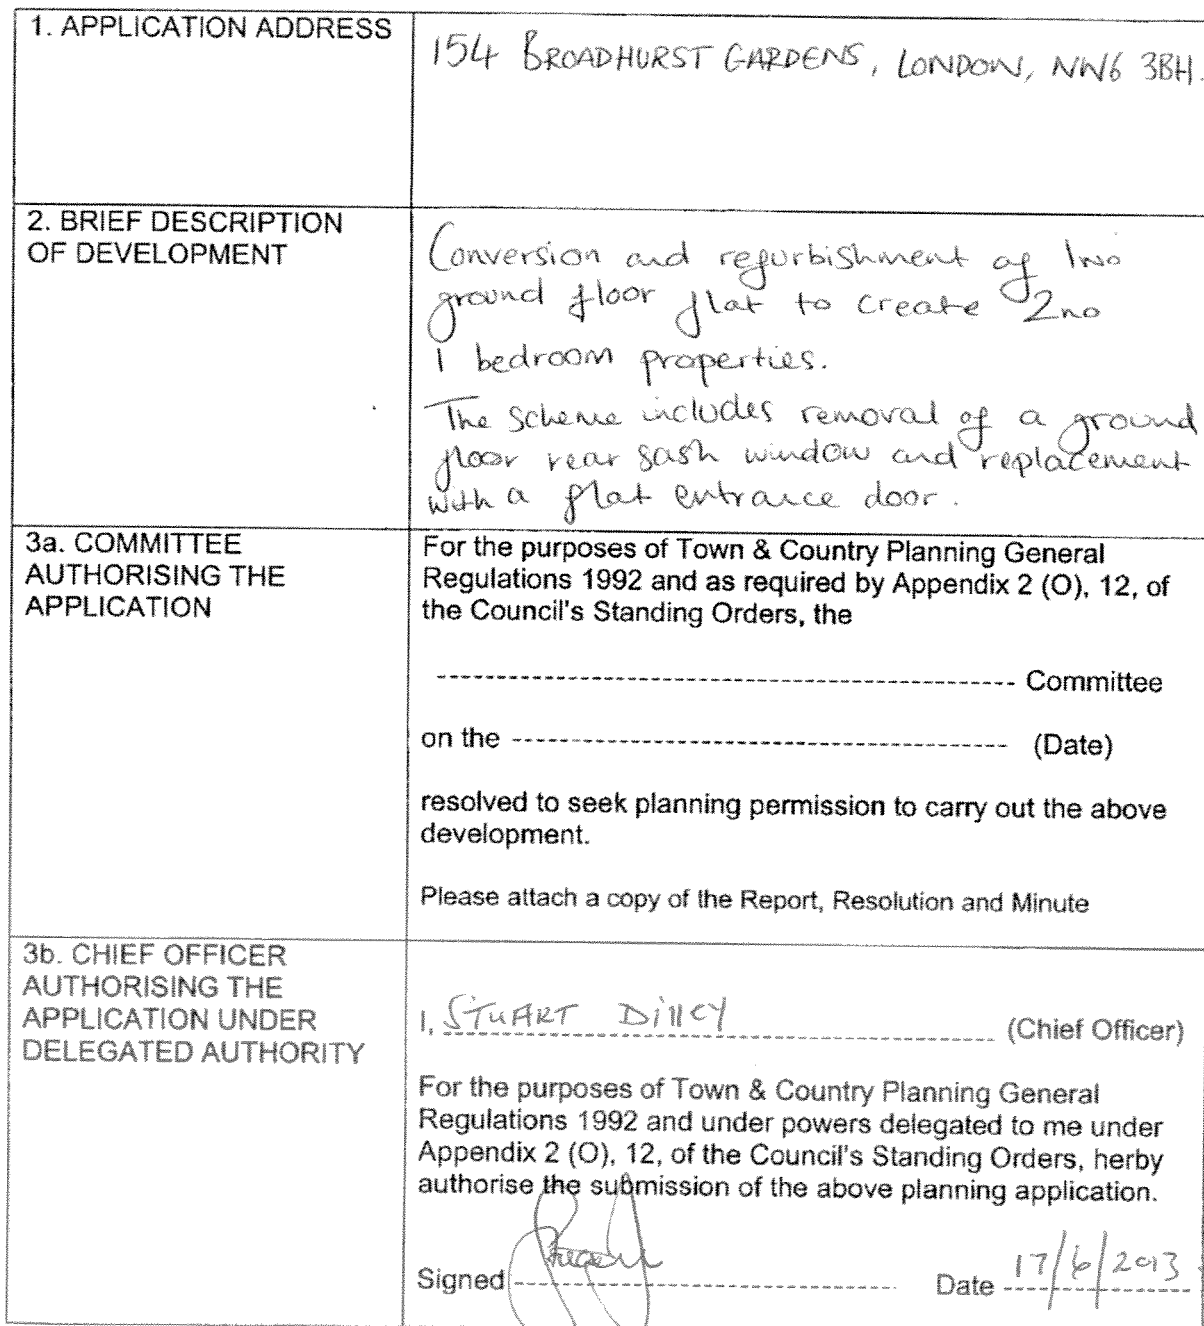 1. APPLICATION ADDRESS
154 BROADHURST GARDENS, LONDON, NW6 3BH.
2. BRIEF DESCRIPTION
OF DEVELOPMENT
Conversion and refurbishment of 1no
ground floor flat to create 2no
1 bedroom properties.
The scheme includes removal of a ground
floor rear sash window and replacement
with a flat entrance door.
3a. COMMITTEE
AUTHORISING THE
APPLICATION
For the purposes of Town & Country Planning General
Regulations 1992 and as required by Appendix 2 (O), 12, of
the Council's Standing Orders, the
------------------------------------------------ Committee
on the ----------------------------------------- (Date)
resolved to seek planning permission to carry out the above
development.
Please attach a copy of the Report, Resolution and Minute
3b. CHIEF OFFICER
AUTHORISING THE
APPLICATION UNDER
DELEGATED AUTHORITY
I, STUART Dilley (Chief Officer)
For the purposes of Town & Country Planning General
Regulations 1992 and under powers delegated to me under
Appendix 2 (O), 12, of the Council's Standing Orders, herby
authorise the submission of the above planning application.
Signed Date 17/6/2013